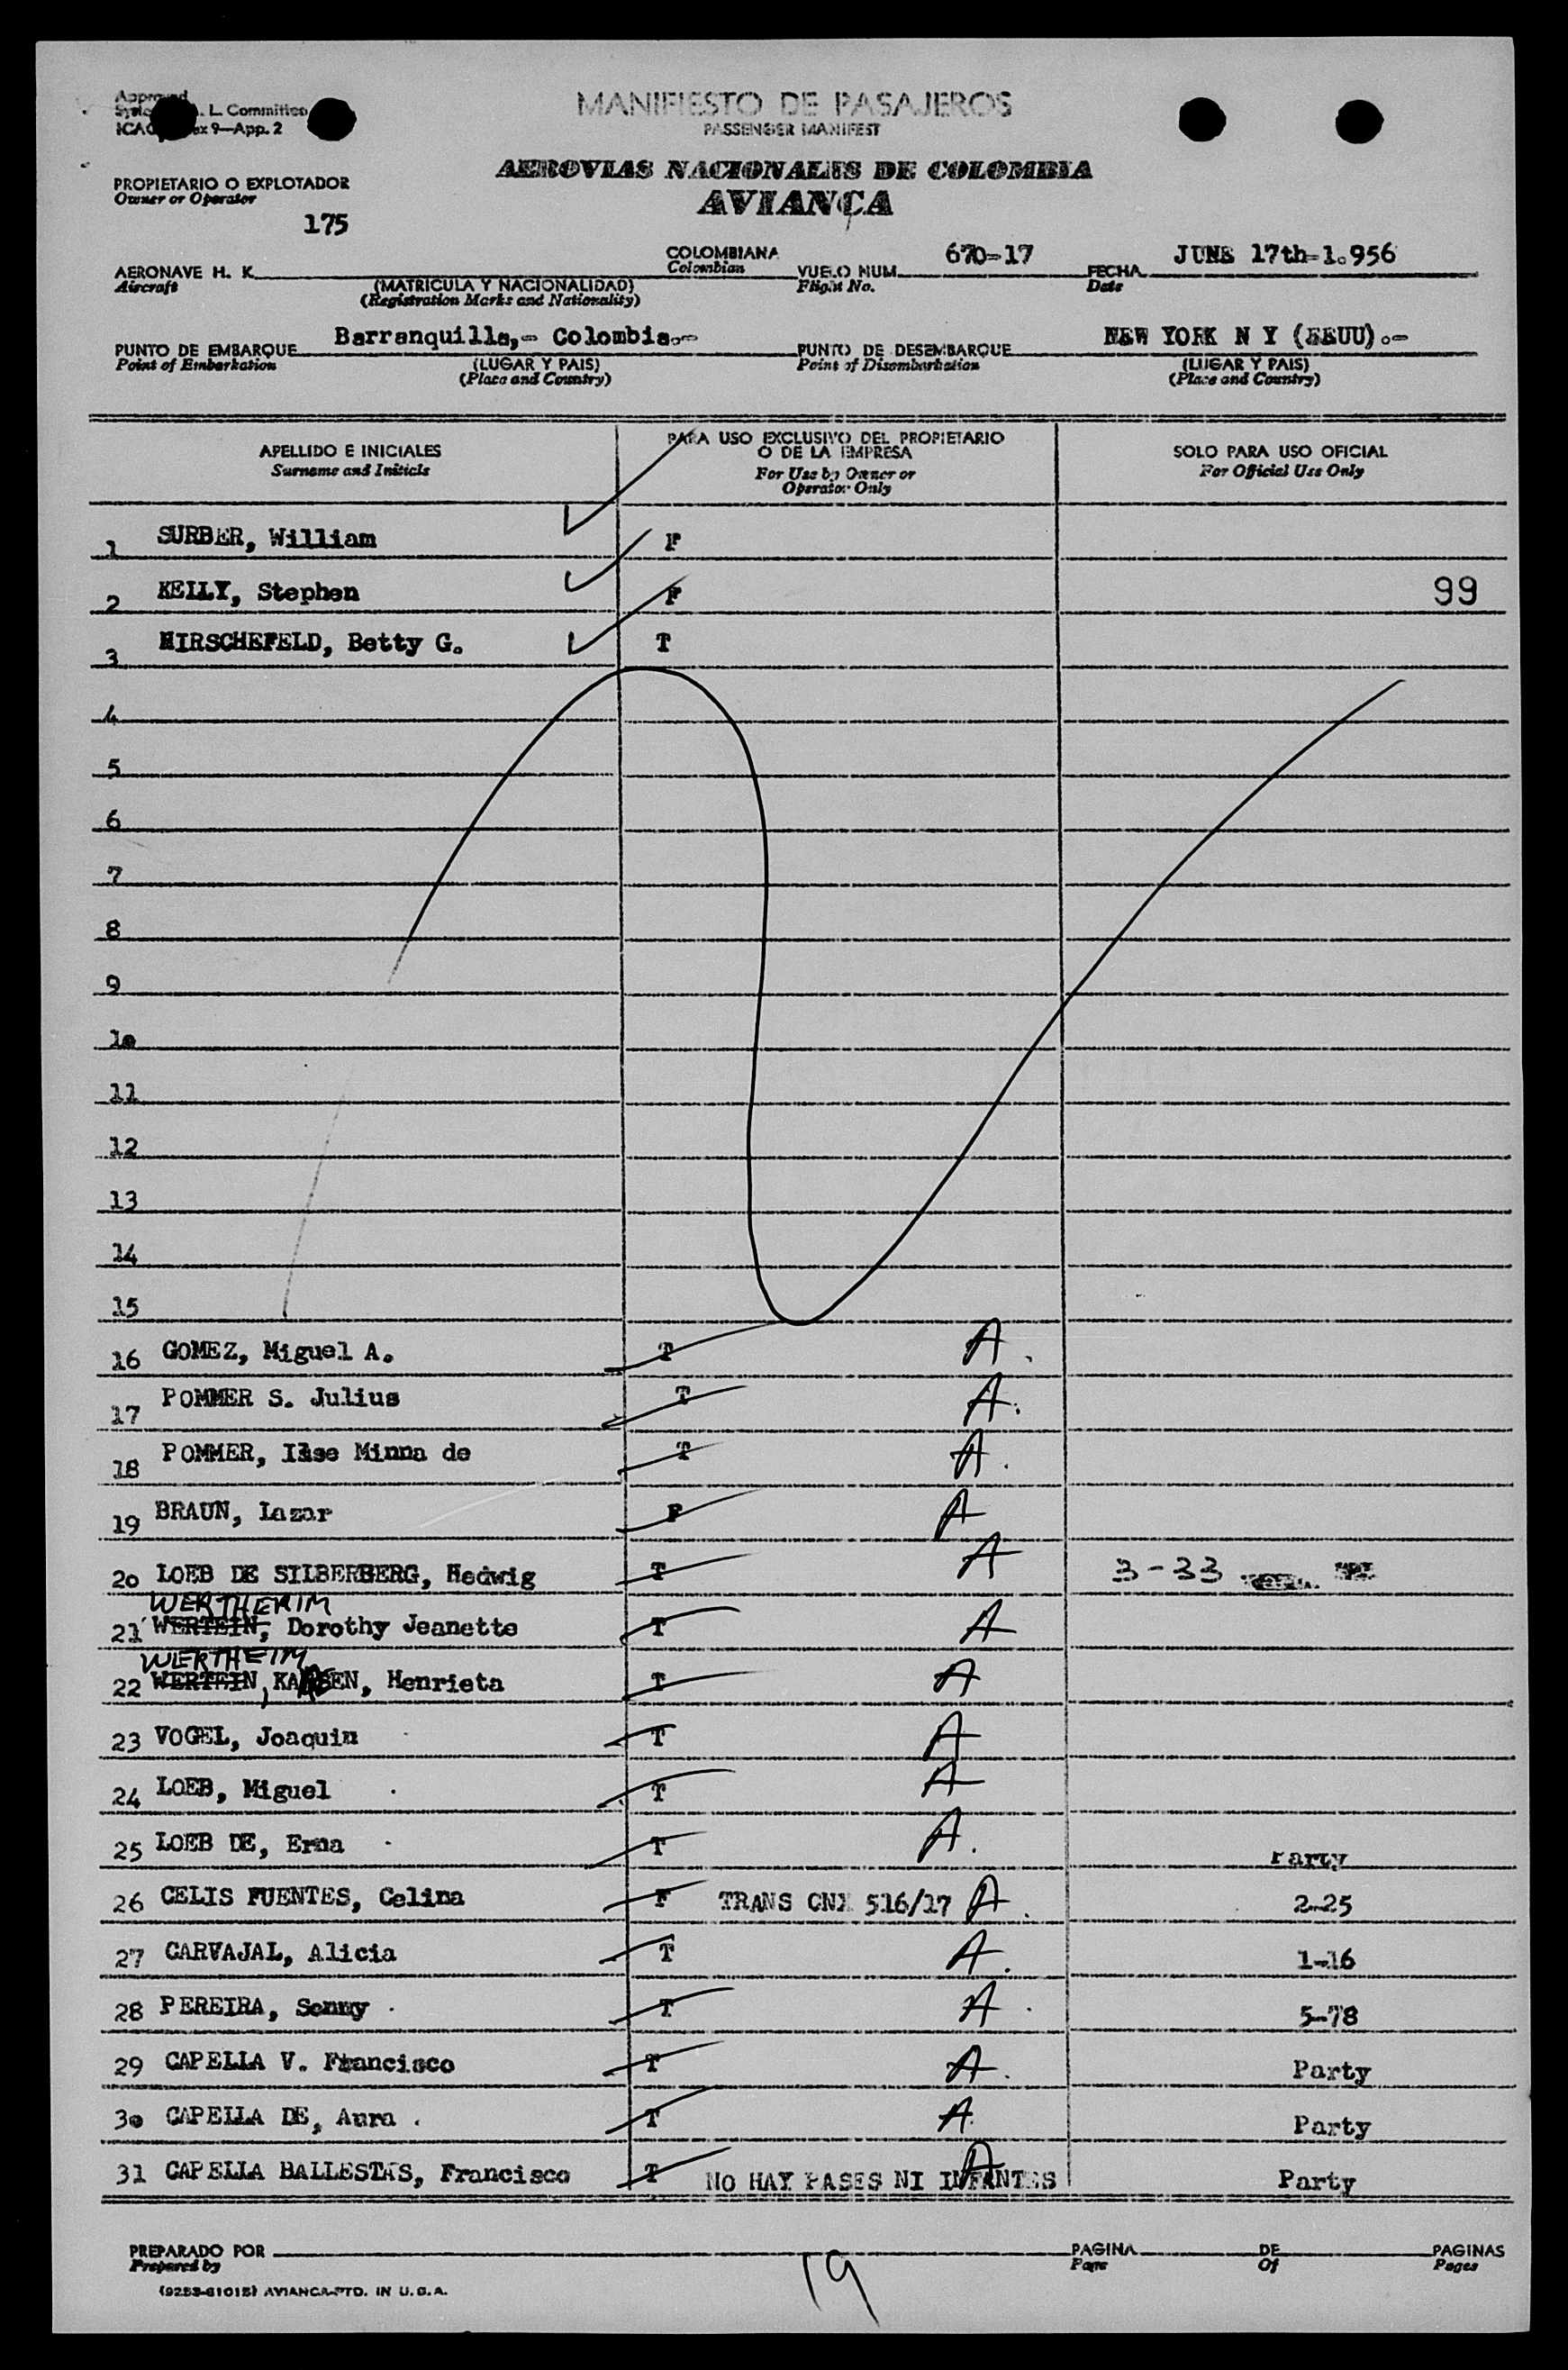 Approved
L. Committee
9—App. 2
MANIFIESTO DE PASAJEROS
PASSENGER MANIFEST
AEROVIAS NACIONALES DE COLOMBIA
AVIANCA
PROPIETARIO O EXPLOTADOR
Owner or Operator
175
AERONAVE H. K.
Aircraft
(MATRICULA Y NACIONALIDAD)
(Registration Marks and Nationality)
COLOMBIANA
Colombian
VUELO NUM. 670-17
Flight No.
FECHA JUNE 17th-1.956
Date
PUNTO DE EMBARQUE Barranquilla,- Colombia.-
Point of Embarkation
(LUGAR Y PAIS)
(Place and Country)
PUNTO DE DESEMBARQUE NEW YORK N Y (EEUU).-
Point of Disembarkation
(LUGAR Y PAIS)
(Place and Country)
APELLIDO E INICIALES
Surname and Initials
PARA USO EXCLUSIVO DEL PROPIETARIO
O DE LA EMPRESA
For Use by Owner or
Operator Only
SOLO PARA USO OFICIAL
For Official Use Only
1 SURBER, William F
2 KELLY, Stephen F 99
3 HIRSCHEFELD, Betty G. T
4
5
6
7
8
9
10
11
12
13
14
15
16 GOMEZ, Miguel A. T A.
17 POMMER S. Julius T A.
18 POMMER, Ilse Minna de T A.
19 BRAUN, Lazar F A
20 LOEB DE SILBERBERG, Hedwig T A 3-33
WERTHEIM
21 WERTEIN, Dorothy Jeanette T A
WERTHEIM
22 WERTEIN, Henrieta T A
23 VOGEL, Joaquin T A
24 LOEB, Miguel T A
25 LOEB DE, Erna T A. Party
26 CELIS FUENTES, Celina F TRANS CNX 516/17 A. 2-25
27 CARVAJAL, Alicia T A. 1-16
28 PEREIRA, Sonny T A. 5-78
29 CAPELLA V. Francisco T A. Party
30 CAPELLA DE, Aura. T A. Party
31 CAPELLA BALLESTAS, Francisco T NO HAY PASES NI INFANTES A Party
PREPARADO POR
Prepared by
PAGINA
Page
DE
Of
PAGINAS
Pages
(9253-61015) AVIANCA-PTD. IN U.S.A.
19